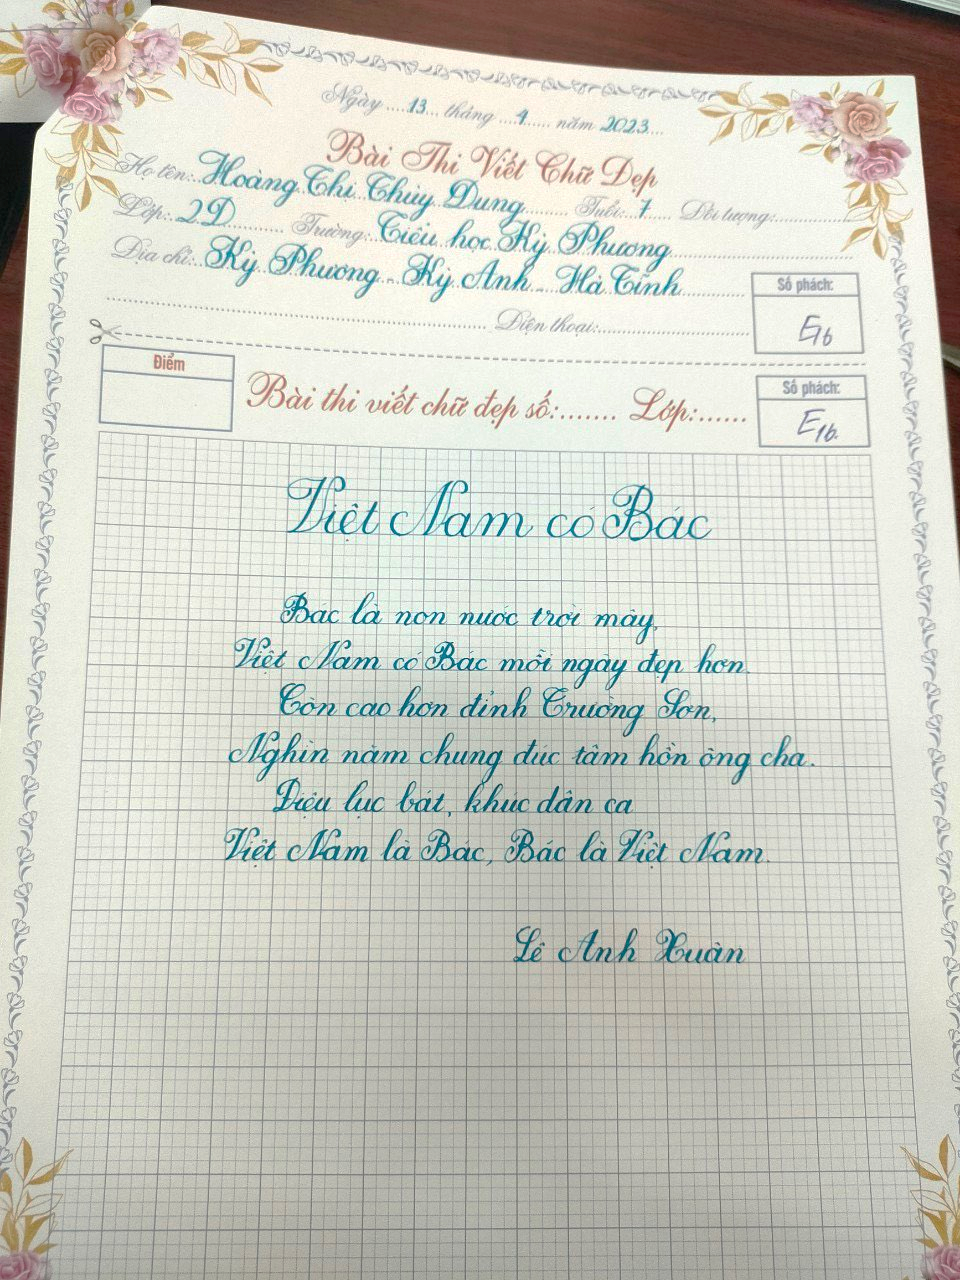 Ngày ....13... tháng ...4..... năm 2023...
Bài Thi Viết Chữ Đẹp
Họ tên:..Hoàng Thị Thùy Dung........ Tuổi:..7.... Đối tượng:.............
Lớp:..2D........... Trường:.Tiểu học Kỳ Phương..........
Địa chỉ:..Kỳ Phương - Kỳ Anh - Hà Tĩnh..........
Điện thoại:..........
Số phách:
E16
Điểm
Bài thi viết chữ đẹp số:....... Lớp:......
Số phách:
E16.
Việt Nam có Bác
Bác là non nước trời mây,
Việt Nam có Bác mỗi ngày đẹp hơn.
Còn cao hơn đỉnh Trường Sơn,
Nghìn năm chung đúc tâm hồn ông cha.
Điệu lục bát, khúc dân ca
Việt Nam là Bác, Bác là Việt Nam.
Lê Anh Xuân